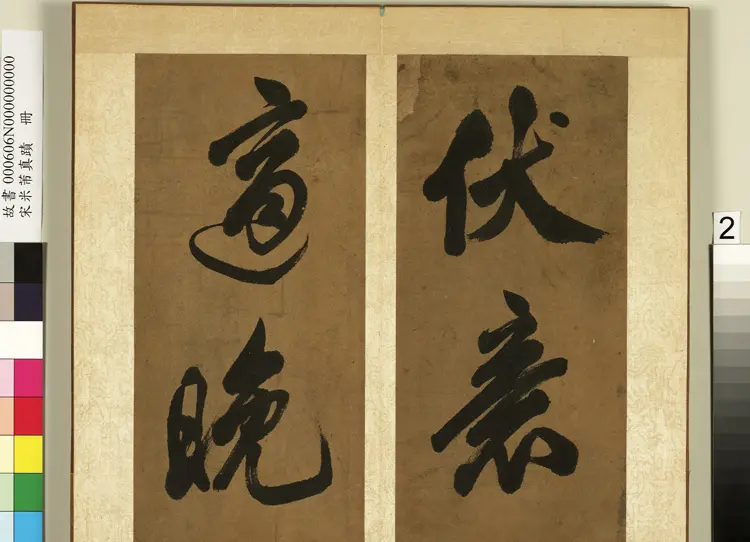 故書 000606N000000000
宋米芾真蹟 冊
伏
適晚
2